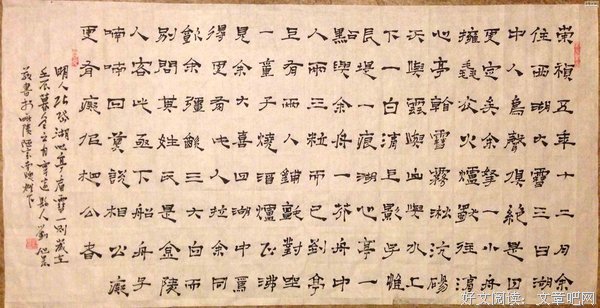 崇禎五年十二月余
住西湖大雪三日湖
中人鳥聲俱絕是日
更定矣余拏一小舟
擁毳衣爐火獨往湖
心亭看雪霧淞沆碭
天與雲與山與水上
下一白湖上影子惟
長堤一痕湖心亭一
點與余舟一芥舟中
人兩三粒而已到亭
上有兩人鋪氈對坐
一童子燒酒爐正沸
見余大喜曰湖中焉
得更有此人拉余同
飲余強飲三大白而
別問其姓氏是金陵
人客此及下船舟子
喃喃曰莫說相公癡
更有癡似相公者
明人張岱湖心亭看雪一則歲在
壬辰暮冬
好文阅读：文章吧网